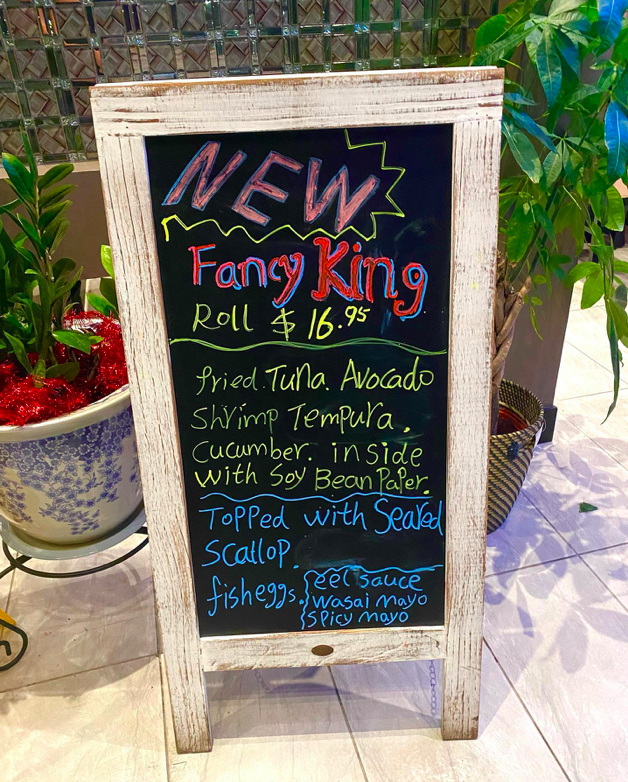 NEW
Fancy King
Roll $ 16.95
fried. Tuna. Avocado
Shrimp Tempura.
Cucumber. inside
with Soy Bean Paper.
Topped with Seared
Scallop.
fish eggs. { eel sauce
wasai mayo
spicy mayo